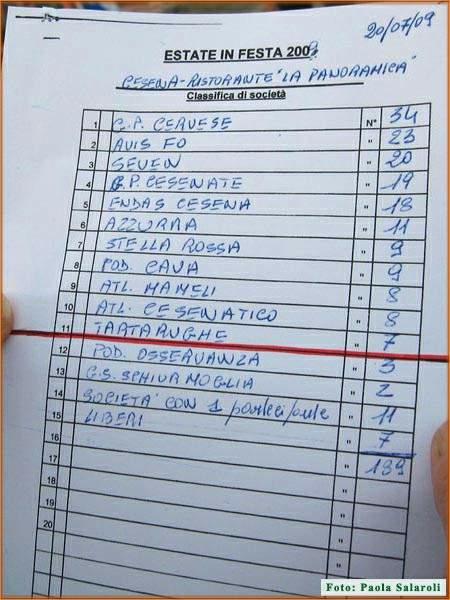 20/07/09
ESTATE IN FESTA 2009
CESENA - RISTORANTE "LA PANORAMICA"
Classifica di società
1 G.P. CERVESE N° 34
2 AVIS FO " 23
3 SEVEN " 20
4 G.P. CESENATE " 19
5 ENDAS CESENA " 18
6 AZZURRA " 11
7 STELLA ROSSA " 9
8 POD. CAVA " 9
9 ATL. MAMELI " 8
10 ATL. CESENATICO " 8
11 TARTARUGHE " 7
12 POD. OSSERVANZA " 3
13 G.S. SCHIUMOGLIA " 2
14 SOCIETA' CON 1 partecipante " 11
15 LIBERI " 7
16 " 189
17 "
18 "
19 "
20 "
Foto: Paola Salaroli